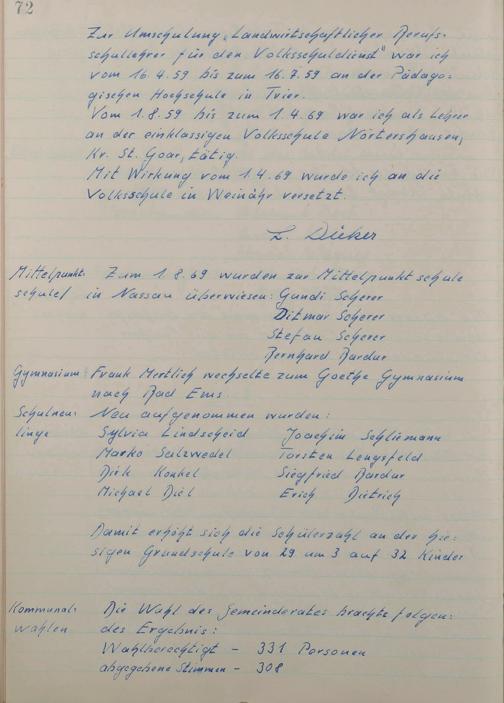 72
Zur Umschulung „Landwirtschaftlicher Berufs-
schullehrer für den Volksschuldienst" war ich
vom 16.4.59 bis zum 16.7.59 an der Pädago-
gischen Hochschule in Trier.
Vom 1.8.59 bis zum 1.4.69 war ich als Lehrer
an der einklassigen Volksschule Nörtershausen,
Kr. St. Goar, tätig.
Mit Wirkung vom 1.4.69 wurde ich an die
Volksschule in Weinähr versetzt.
Mittelpunkt- Zum 1.8.69 wurden zur Mittelpunktschule
schule/ in Nassau überwiesen: Gundi Scherer
Ditmar Scherer
Stefan Scherer
Bernhard Bardur
Gymnasium: Frank Mertlich wechselte zum Goethe Gymnasium
nach Bad Ems.
Schulneu- Neu aufgenommen wurden:
linge Sylvia Lindscheid Joachim Schliemann
Marko Salzwedel Torsten Lengsfeld
Dirk Konkel Siegfried Bardur
Michael Diel Erich Dietrich
Damit erhöht sich die Schülerzahl an der hie-
sigen Grundschule von 29 um 3 auf 32 Kinder
Kommunal- Die Wahl des Gemeinderates brachte folgen-
wahlen des Ergebnis:
Wahlberechtigt - 331 Personen
abgegebene Stimmen - 308